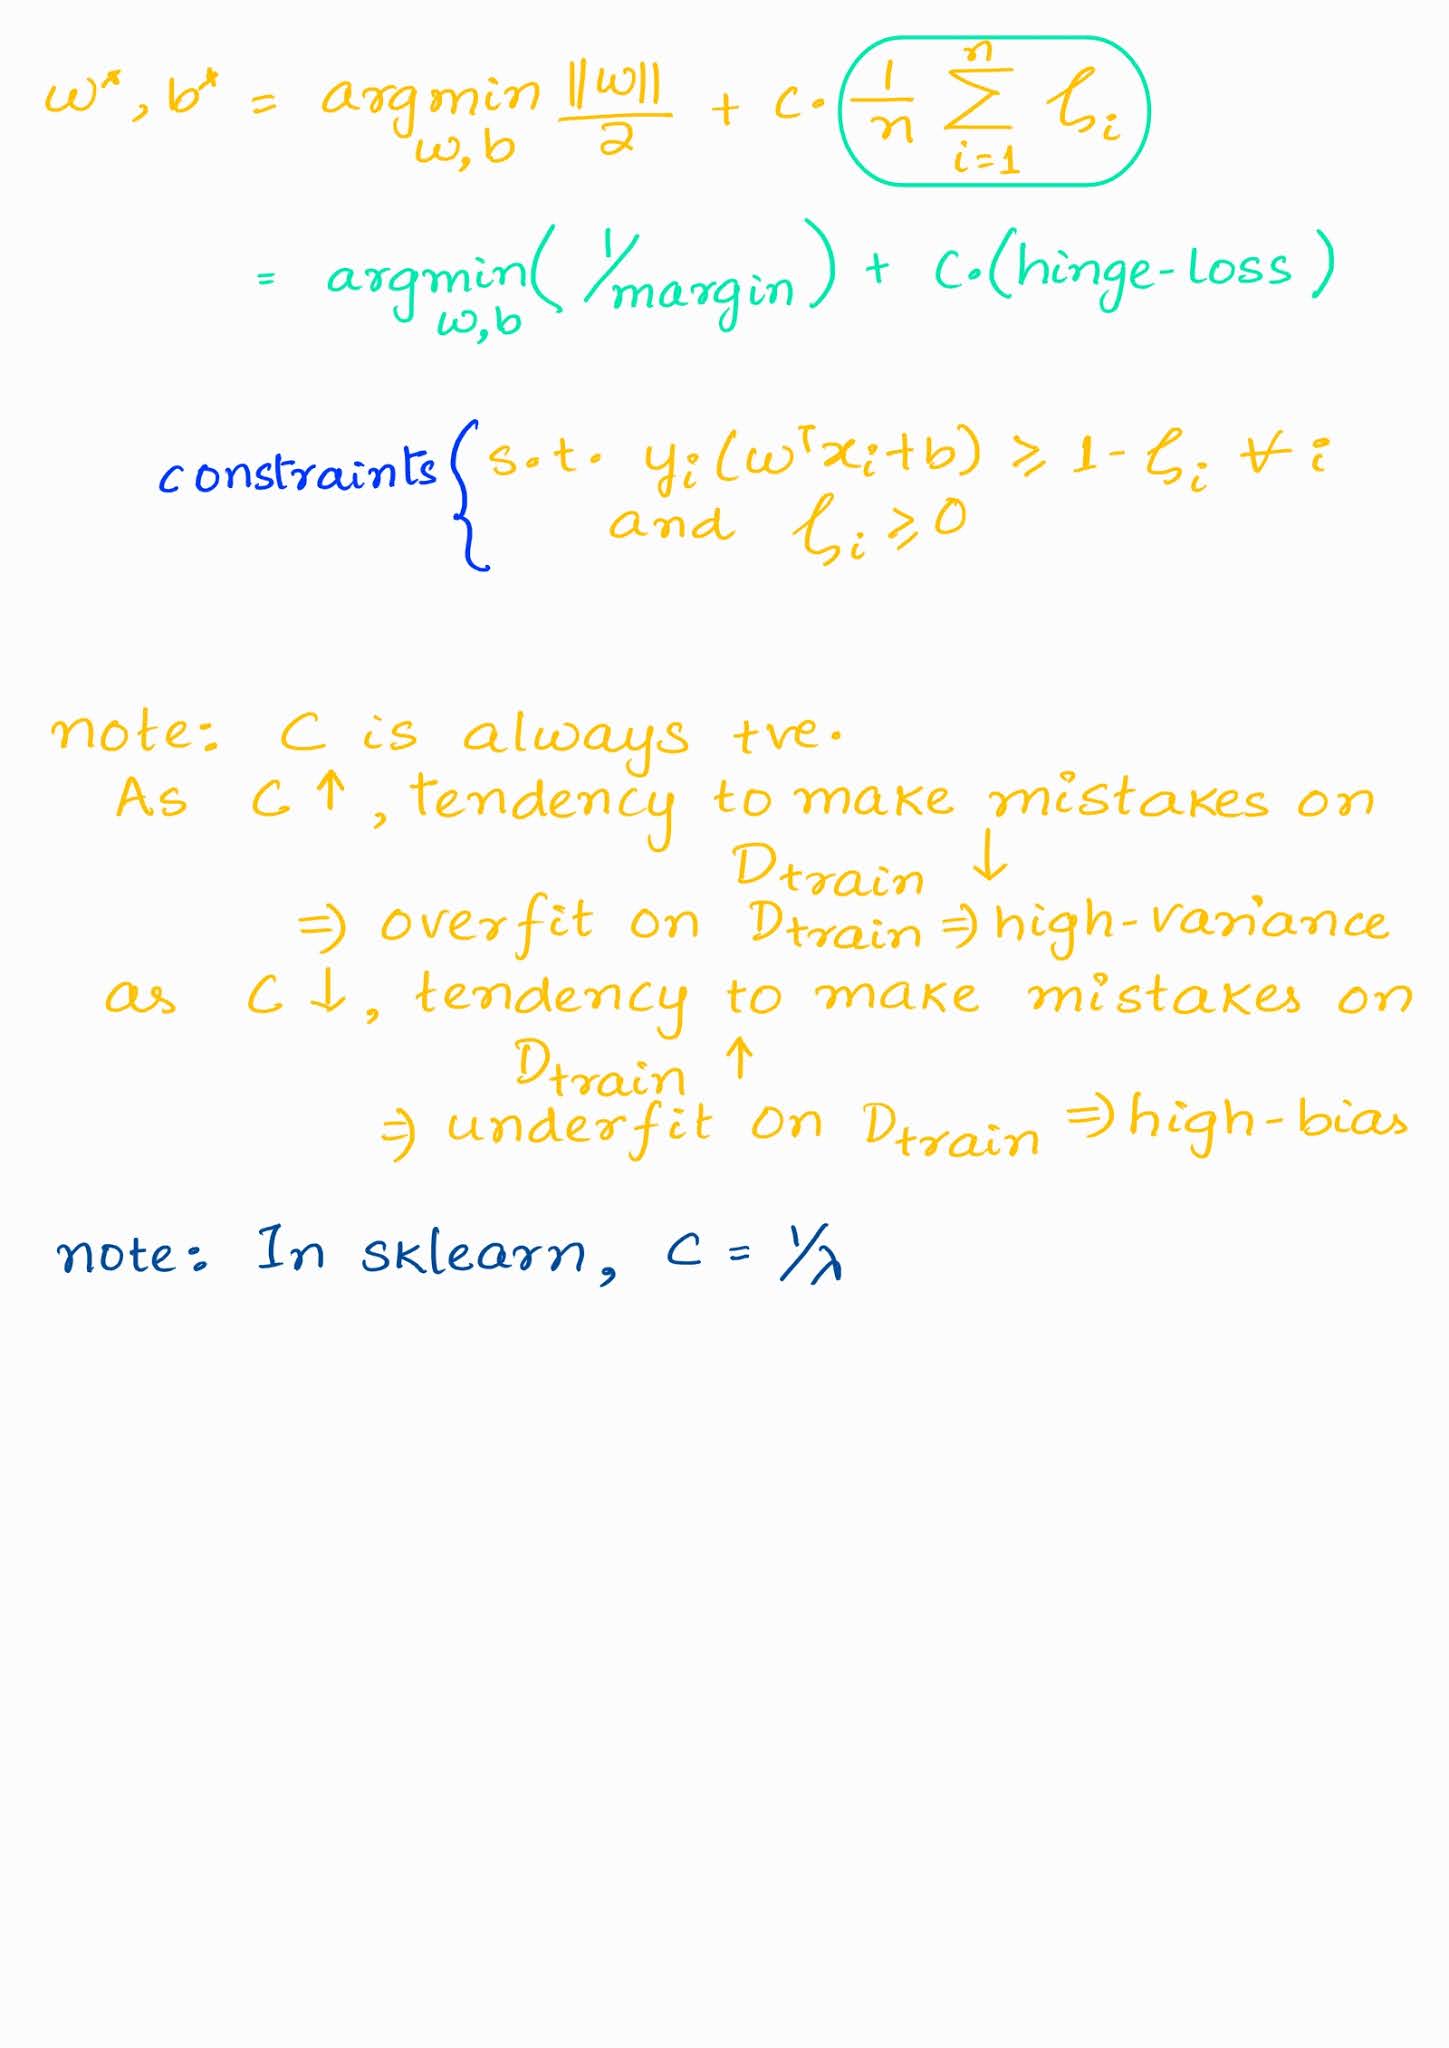 w*, b* = argmin_{w,b} ||w||/2 + C · 1/n Σ_{i=1}^{n} ζ_i
= argmin_{w,b} (1/margin) + C·(hinge-loss)
constraints { s.t. y_i(wᵀx_i+b) ≥ 1 - ζ_i ∀ i
and ζ_i ≥ 0
note: C is always +ve.
As C ↑, tendency to make mistakes on
D_train ↓
⇒ overfit on D_train ⇒ high-variance
as C ↓, tendency to make mistakes on
D_train ↑
⇒ underfit on D_train ⇒ high-bias
note: In sklearn, C = 1/λ